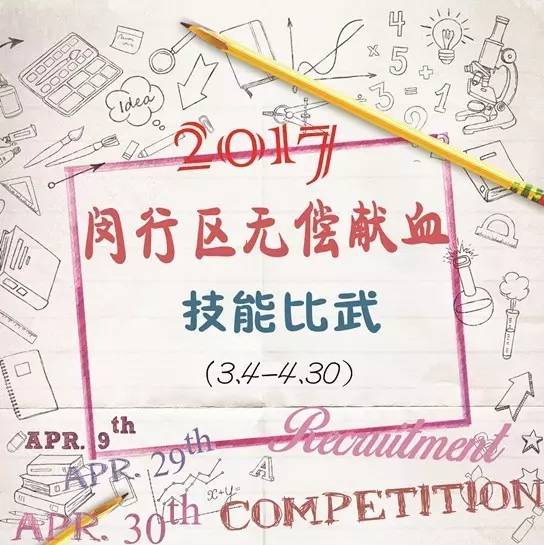 Idea
4
5
3
2
5
1
+
=
2017
闵行区无偿献血
技能比武
(3.4-4.30)
Recruitment
APR. 9th
APR. 29th
APR. 30th
x+y=
A
COMPETITION